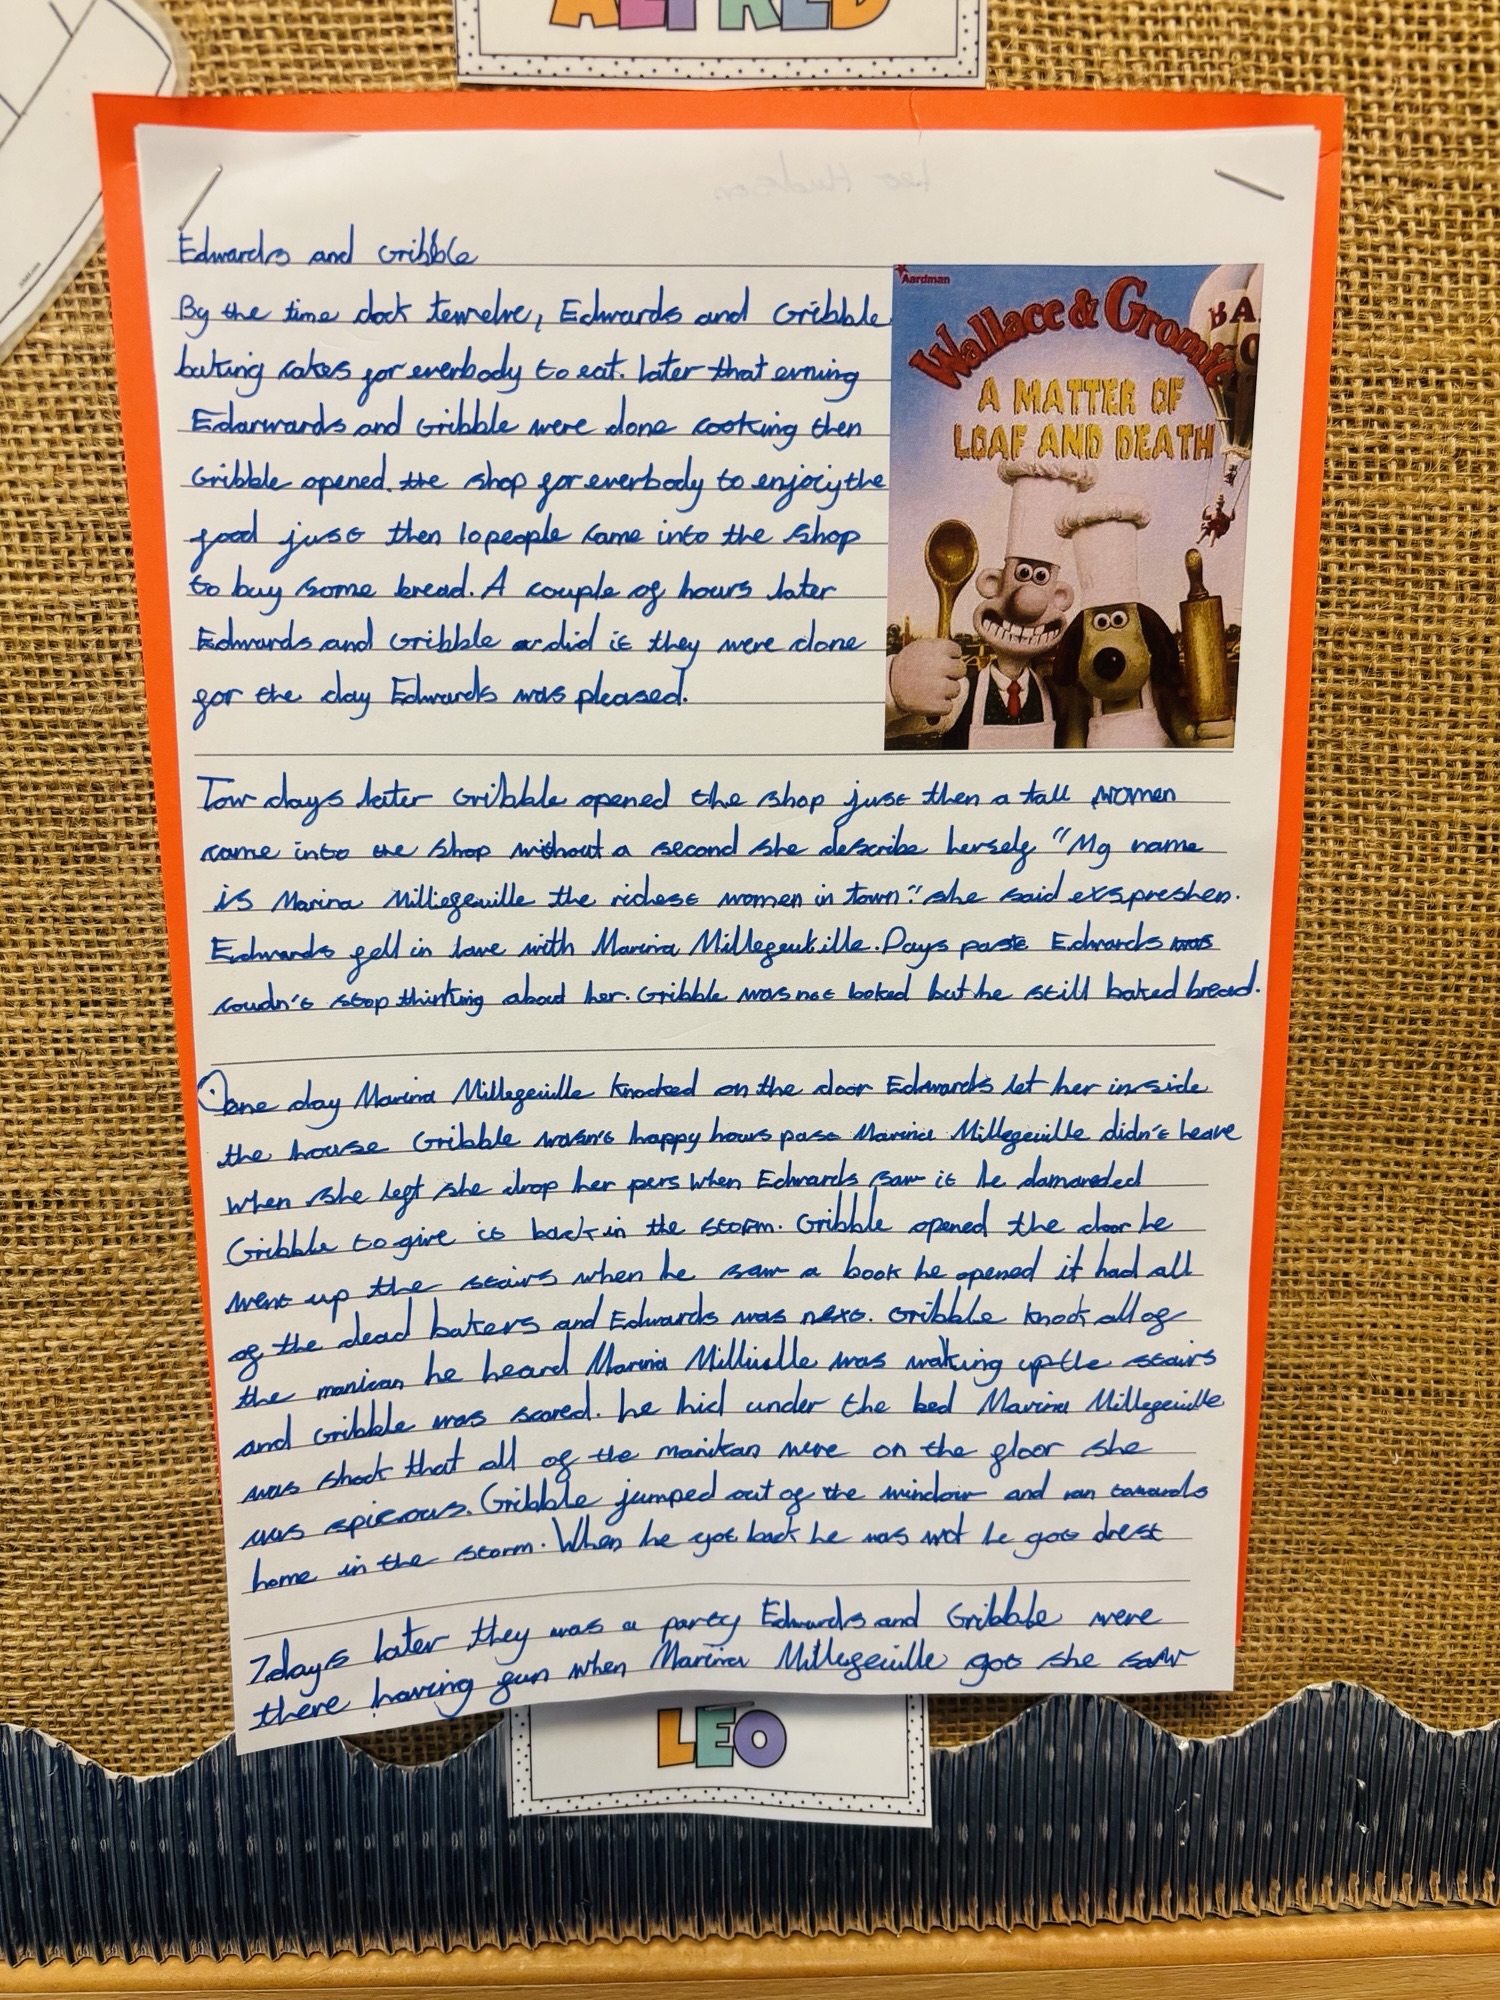 ALFRED
Edwards and Gribble
By the time clock tewelve, Edwards and Gribble
baking cakes for everbody to eat. later that evning
Edarwards and Gribble were done cooking then
Gribble opened the shop for everbody to enjoiy the
food just then 10 people came into the shop
to buy some bread. A couple of hours later
Edwards and Gribble did it they were done
for the day Edwards was pleased.
Aardman
Wallace & Gromit
A MATTER OF
LOAF AND DEATH
BA
Tow days later Gribble opened the shop just then a tall women
came into the shop without a second she describe herself "My name
is Marina Milliegeville the richest women in town" she said exspreshen.
Edwards fell in love with Marina Millegeuville. Days paste Edwards was
coudn't stop thinking about her. Gribble was not boked but he still baked bread.
One day Marina Millegeville knocked on the door Edwards let her inside
the house Gribble wasn't happy hours pass Marina Millegeville didn't leave
when she left she drop her pers when Edwards saw it he damareded
Gribble to give it back in the storm. Gribble opened the door he
went up the stairs when he saw a book he opened it had all
of the dead bakers and Edwards was next. Gribble knock all of
the manican he heard Marina Millville was walking up the stairs
and Gribble was scared. he hid under the bed Marina Millegeville
was shock that all of the manikan were on the floor she
was spicrous. Gribble jumped out of the window and ran towards
home in the storm. When he got back he was wet he got drest
7 days later they was a party Edwards and Gribble were
there having fun when Marina Millegeville got she saw
LEO